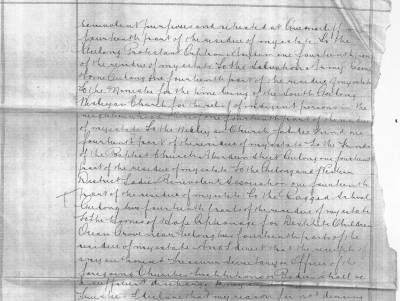 benevolent purposes and situated at Queenscliff one
fourteenth part of the residue of my estate To the
Geelong Protestant Orphan Asylum one fourteenth part
of the residue of my estate To the Salvation Army
Home Geelong one fourteenth part of the residue of my estate
To the Minister for the time being of the South Geelong
Wesleyan Church for the relief of indigent persons in the
one fourteenth part of the residue
of my estate To the Wesleyan Church Jubilee Fund one
fourteenth part of the residue of my estate To the Funds
of the Baptist Church Aberdeen Street Geelong one fourteenth
part of the residue of my estate To the Geelong and Western
District Ladies Benevolent Association one fourteenth
part of the residue of my estate To the Ragged School
Geelong two fourteenth parts of the residue of my estate
To the Home of Hope Orphanage for Destitute Children
Ocean Grove near Geelong two fourteenth parts of the
residue of my estate And I direct that the receipt of
any Treasurer Secretary or Officer of the
foregoing Charities Institutions or shall be
a sufficient discharge
I declare that my reason for not